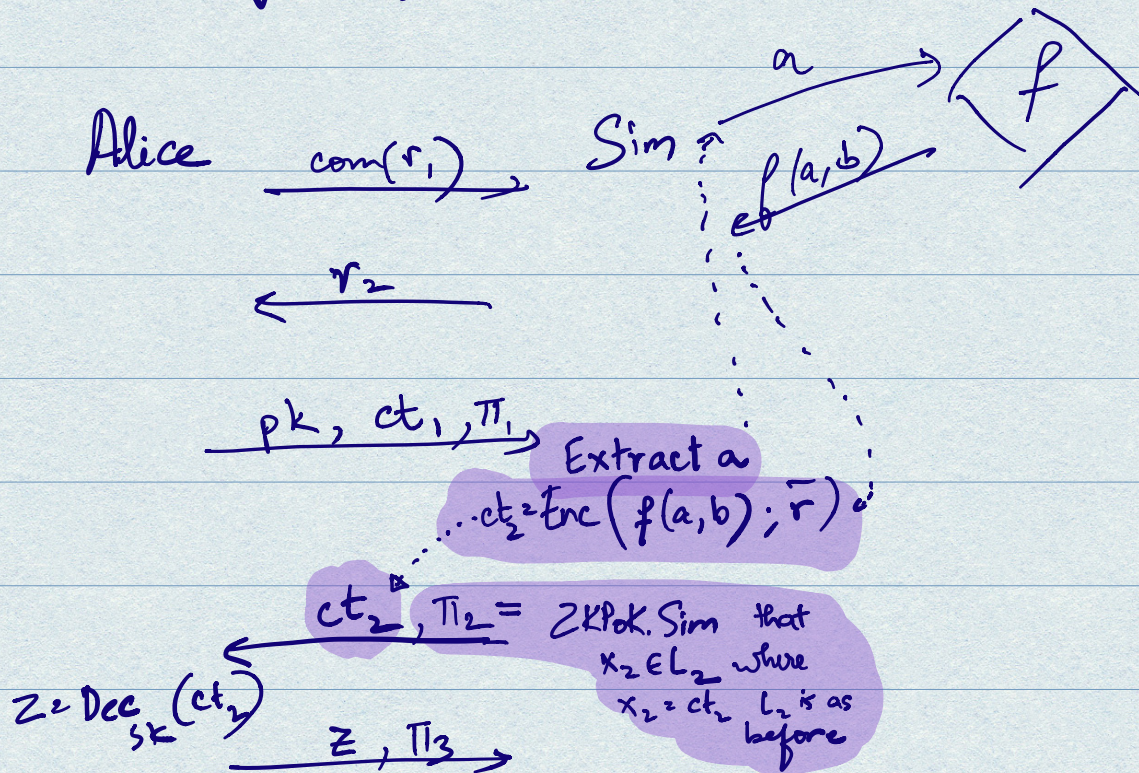 a
f
Alice
com(r₁)
Sim
f(a,b)
r₂
pk, ct₁, π₁
Extract a
ct₂ = Enc(f(a,b); r̄)
ct₂, π₂ = ZKPoK.Sim that
x₂ ∈ L₂ where
x₂ = ct₂ L₂ is as
before
z = Dec_sk(ct₂)
z, π₃